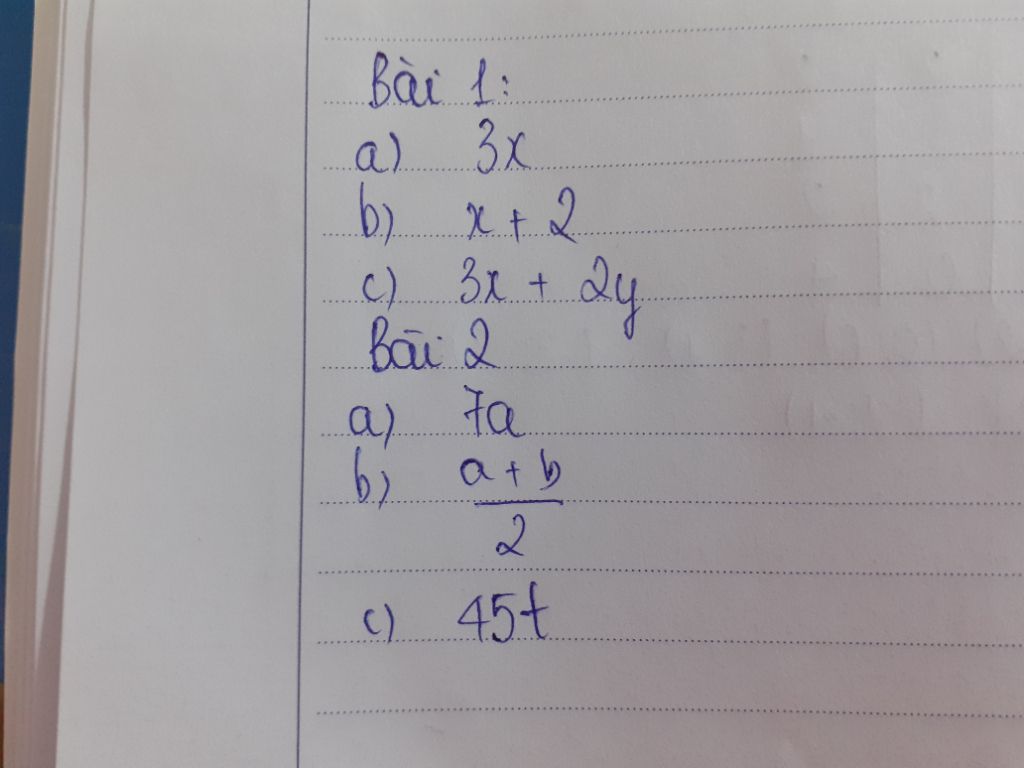 Bài 1:
a) 3x
b) x + 2
c) 3x + 2y
Bài 2
a) 7a
b) a + b
2
c) 45t